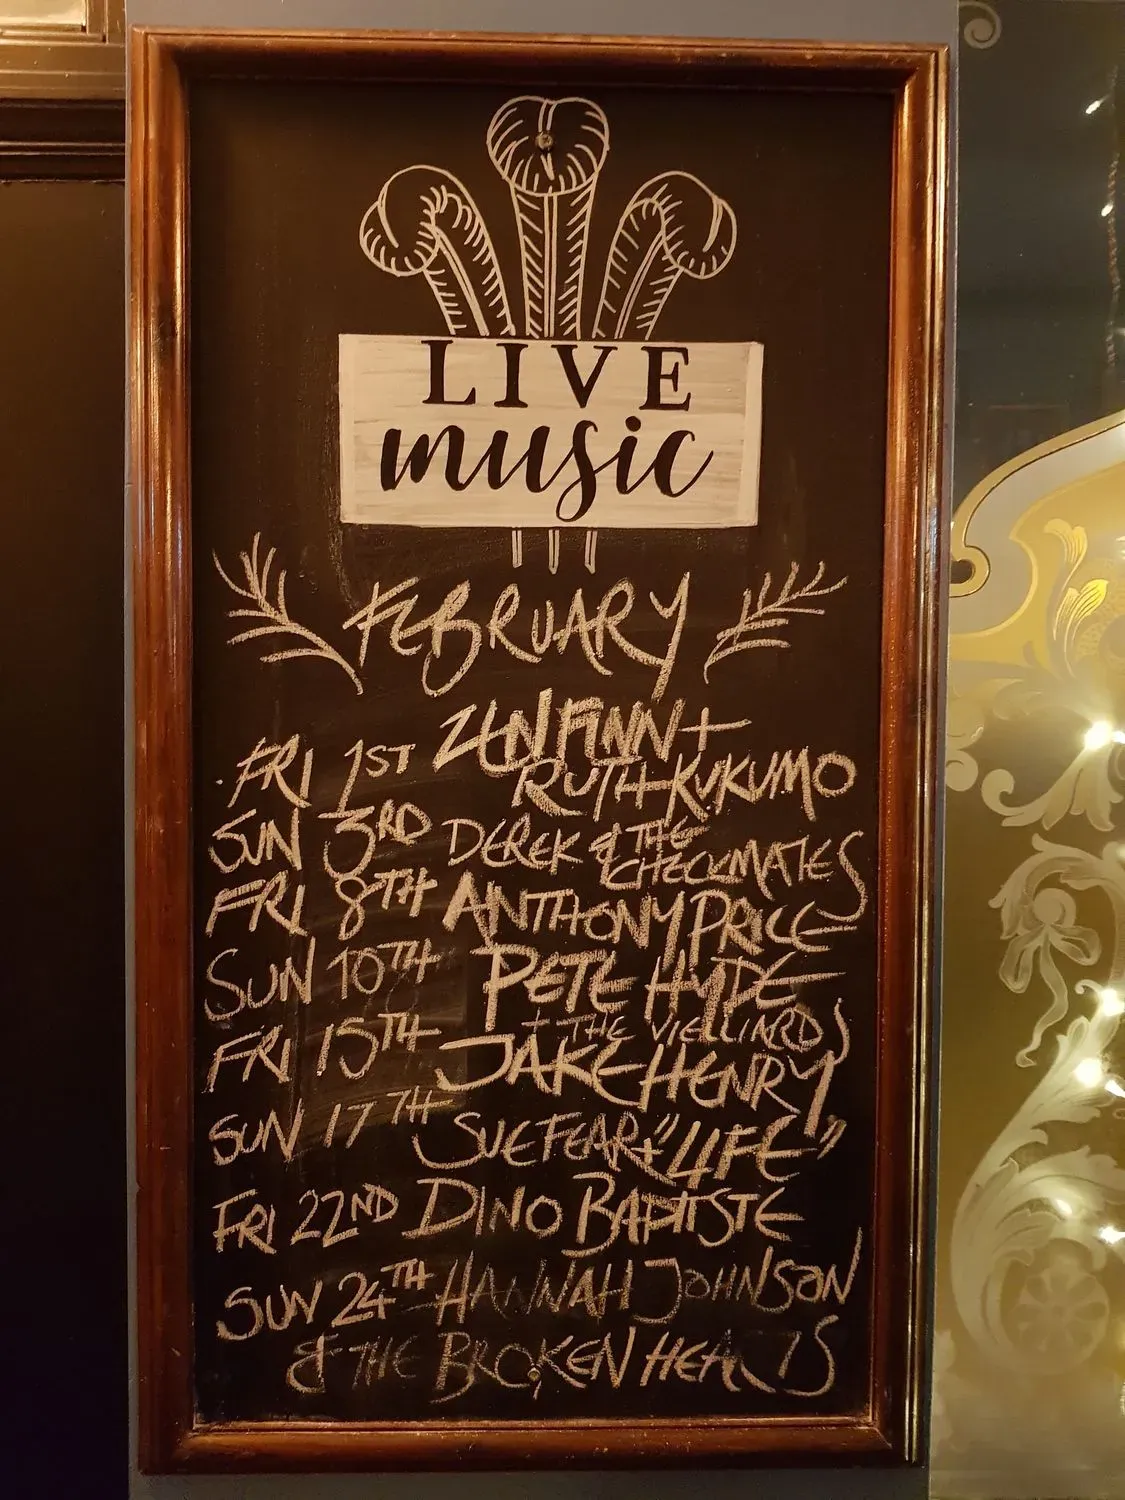 LIVE
music
FEBRUARY
FRI 1ST ZEN FINN +
RUTH KUKUMO
SUN 3RD DEREK & THE
CHECKMATES
FRI 8TH ANTHONY PRICE
SUN 10TH PETE HYDE
+ THE VIELLIARDS
FRI 15TH JAKE HENRY
SUN 17TH SUE FEAR + "4IFE"
FRI 22ND DINO BAPTISTE
SUN 24TH HANNAH JOHNSON
& THE BROKEN HEARTS